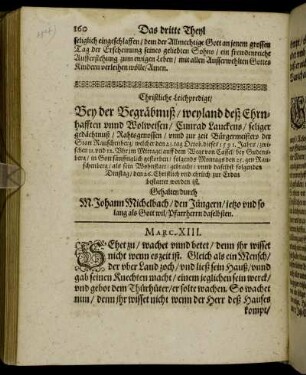 160
Das dritte Theyl
seliglich eingeschlaffen / dem der Allmechtige Gott an jenem grossen
Tag der Erscheinung seines geliebten Sohns / ein frewdenreiche
Aufferstehung zum ewigen Leben / mit allen Ausserwehlten Gottes
Kindern verleihen wölle / Amen.
Christliche Leichpredigt /
Bey der Begräbnuß / weyland deß Ehrn-
hafften vnnd Wolweisen / Cunrad Lauckens / seliger
gedächtnuß / Rahtsgenossen / vnnd zur zeit Bürgermeisters der
Statt Rauschenberg / welcher den 24. tag Octob. dieses / 1591. Jahrs / zwi-
schen 11. vnd 12. Vhr im Mittag / auff dem
in Gott sanfftmütiglich gestorben / folgends Montags den 25. gen Rau-
schenberg / als sein Vatterlandt / gebracht / vnnd daselbst folgenden
Dienstag / den 26. Christlich vnd ehrlich zur Erden
bestattet worden ist.
Gehalten durch
M. Johann Michelbach / den Jüngern / jetzo vnd so
lang als Gott wil / Pfarrherrn daselbsten.
MARC. XIII.
SEhet zu / wachet vnnd betet / denn jhr wisset
nicht wenn es zeit ist. Gleich als ein Mensch /
der vber Land zoch / vnd ließ sein Hauß / vnnd
gab seinen Knechten macht / einem jeglichen sein werck /
vnd gebot dem Thürhüter / er solte wachen. So wachet
nun / denn jhr wisset nicht wenn der Herr deß Hauses
kompt /